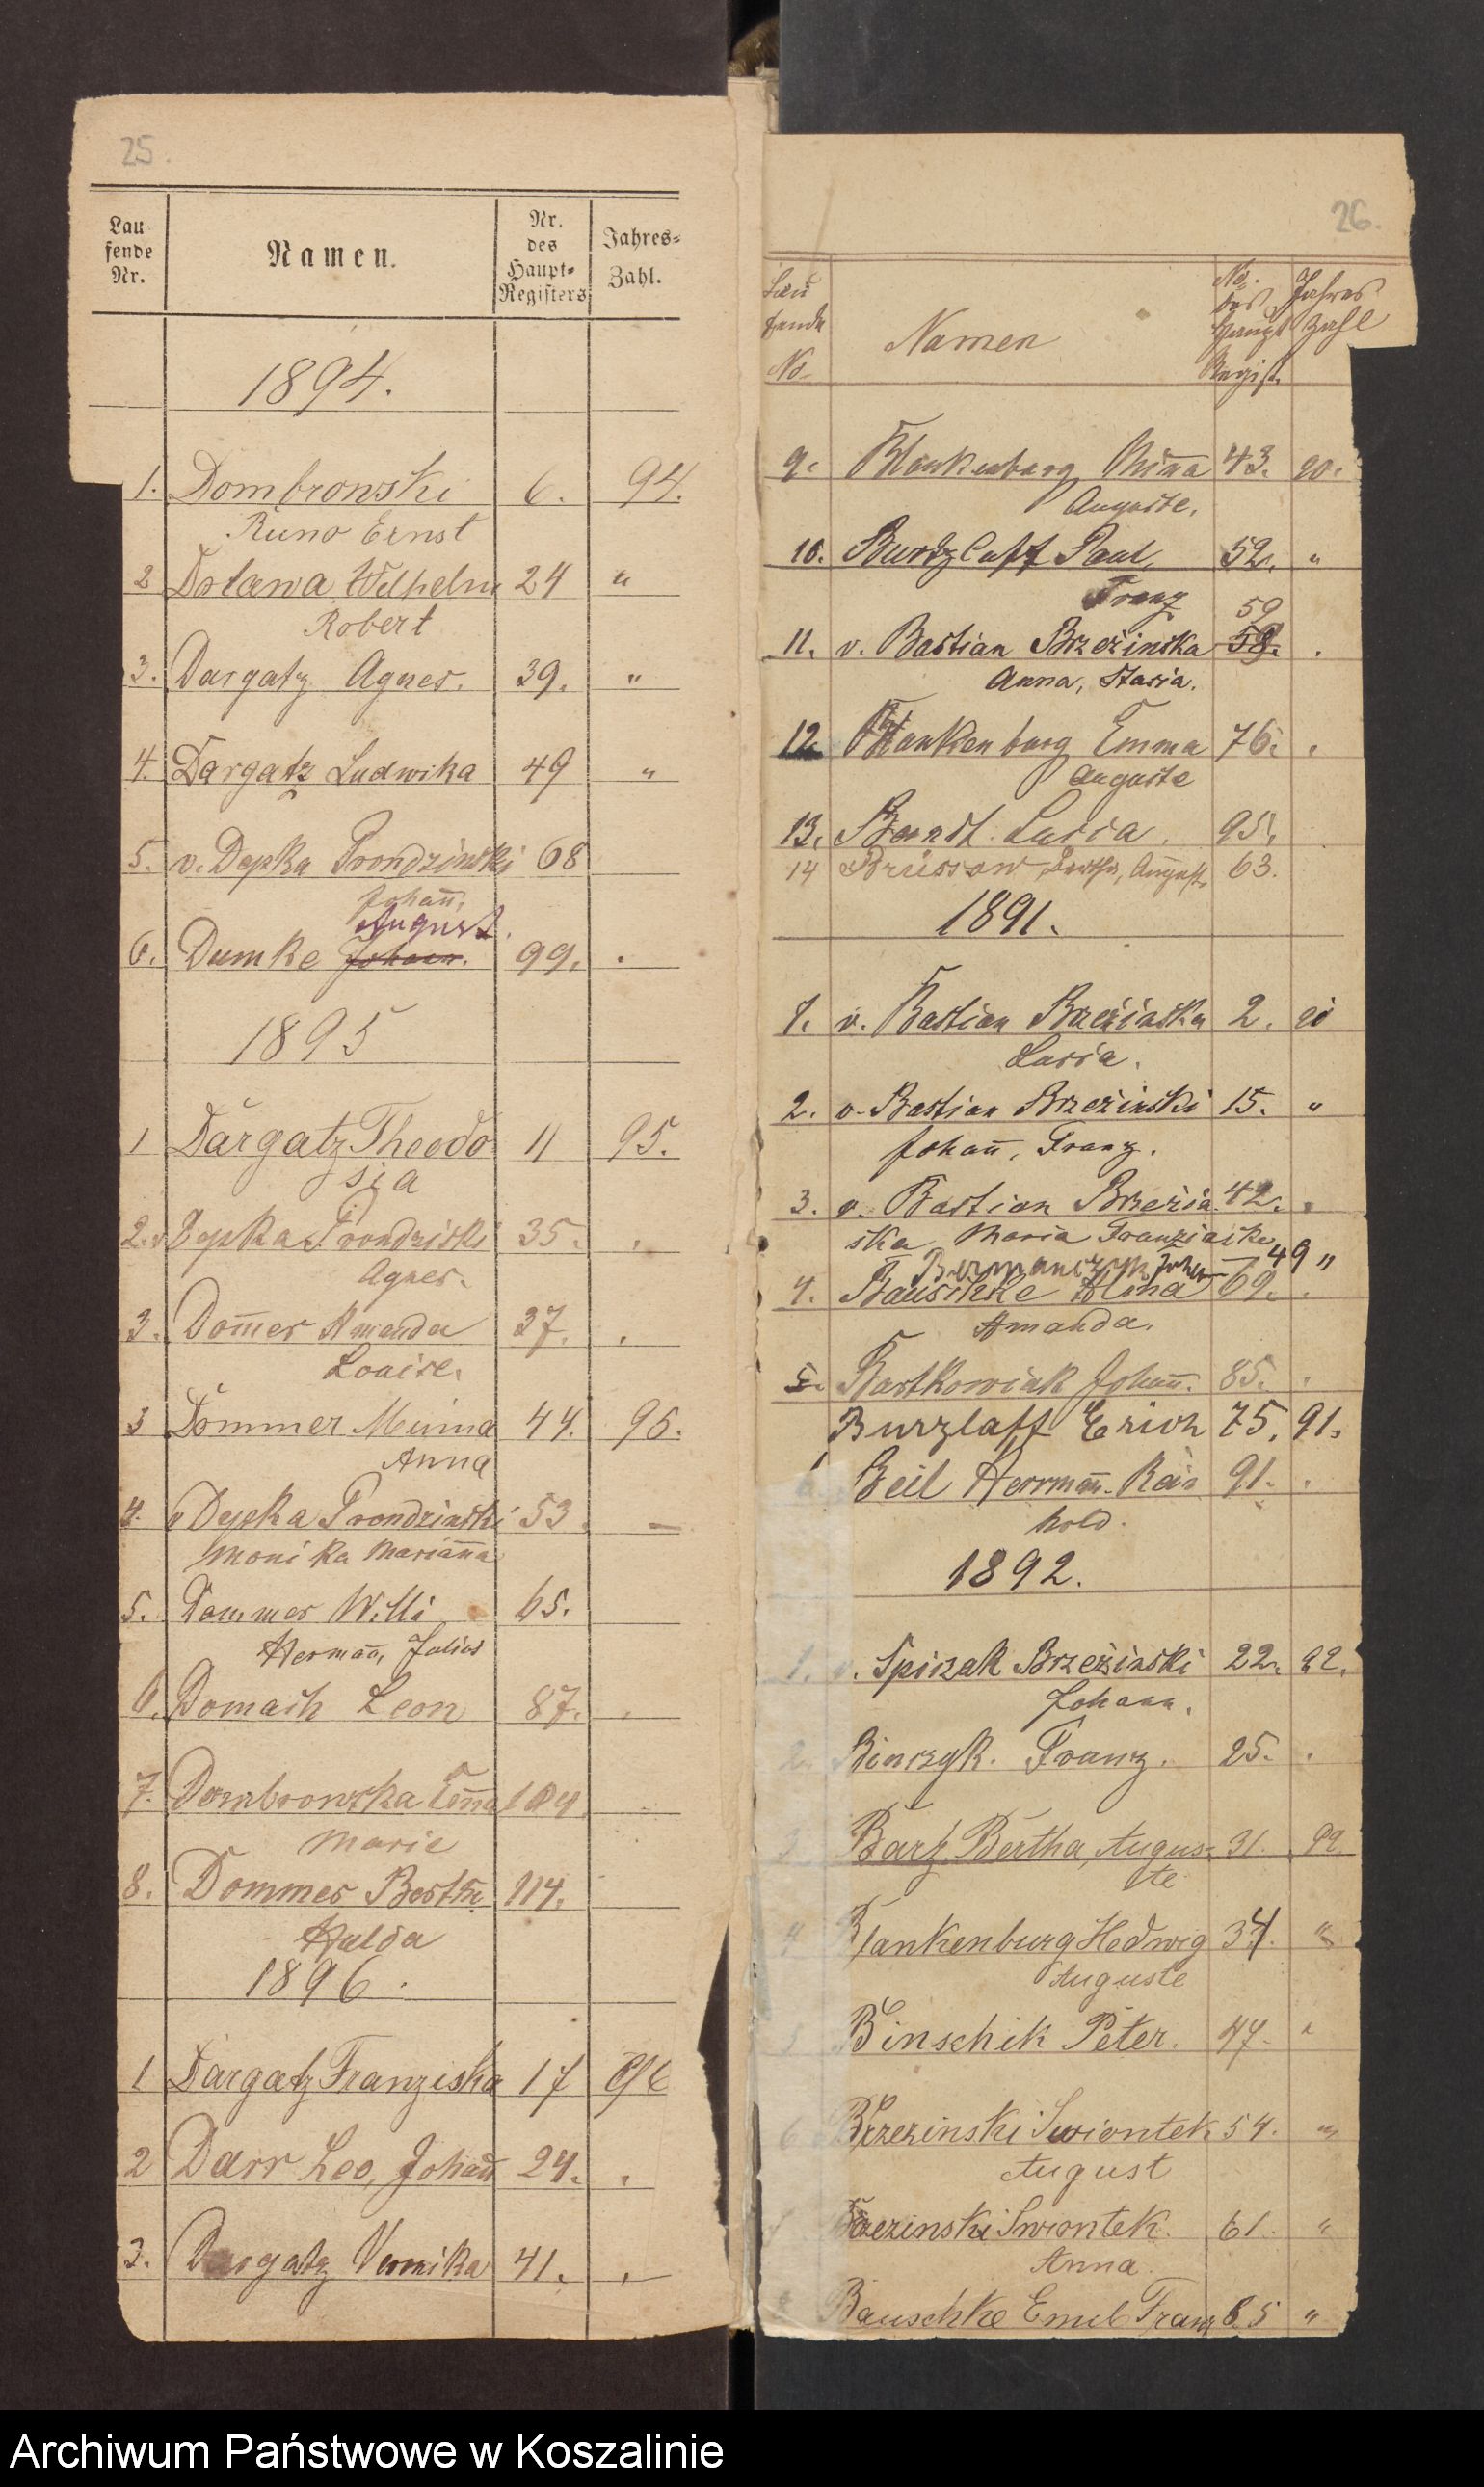 25.
Lau
fende
Nr.
Namen.
Nr.
des
Haupt-
Registers
Jahres-
Zahl.
1894.
1. Dombrowski 6. 94.
Runo Ernst
2 Wilhelm 24 "
Robert
3. Dargatz Agnes. 39. "
4. Dargatz Ludwika 49 "
5. v. Depka Prondzinski 68
Johan̅,
August.
6. Dumke Johann. 99. .
1895
1 Dargatz Theodo 11 95.
sia
2. v Depka Prondziski 35. .
Agnes.
3. Dom̅er Amanda 37. .
Louise.
3 Dommer Minna 44. 95.
Anna
4. v Depka Prondzinski 53
Monika Marian̅a
5. Dommer Willi 65.
Herman̅, Julius
6. Domach Leon 87. .
7. Dombrowska 104
Marie
8. Dommer Bertha 114.
Hulda
1896.
1 Dargatz Franziska 17 96
2 Darr Leo, Johan̅ 24. .
3. Dargatz Veronika 41. .
26.
Lau
fende
No.
Namen
No.
des
Haupt
Regist.
Jahres
zahl
9. Blankenburg Min̅a 43. 90.
Auguste.
10. Burtzlaff Paul, 52. "
Franz
59
11. v. Bastian Brzezinska 58. .
Anna, Maria.
12. Blankenburg Emma 76. .
Auguste
13. Berndt Lucia. 95.
14 Brüssow August. 63.
1891.
1. v. Bastian Brzezinska 2. 91
Lucia.
2. v. Bastian Brzezinski 15. "
Johan̅, Franz.
3. v. Bastian Brzezin 42. .
ska Maria Franziska
49 "
4. Bauschke Alma 69. .
Amanda.
5. Bartkowiak Johan̅. 85. .
Burzlaff Erich 75. 91.
6. Beil Herrman̅ Rein 91. .
hold.
1892.
1. v. Spiczak Brzezinski 22. 92.
Johann.
2. Binczyk. Franz. 25. .
3 Bartz Bertha, Augus- 31. 92.
te
4 Blankenburg Hedwig 34. "
Auguste
5 Binschik Peter. 47. "
6 Brzezinski Swiontek 54. "
August
Brzezinski Swiontek. 61. "
Anna.
Bauschke Emil Franz 85 "
Archiwum Państwowe w Koszalinie